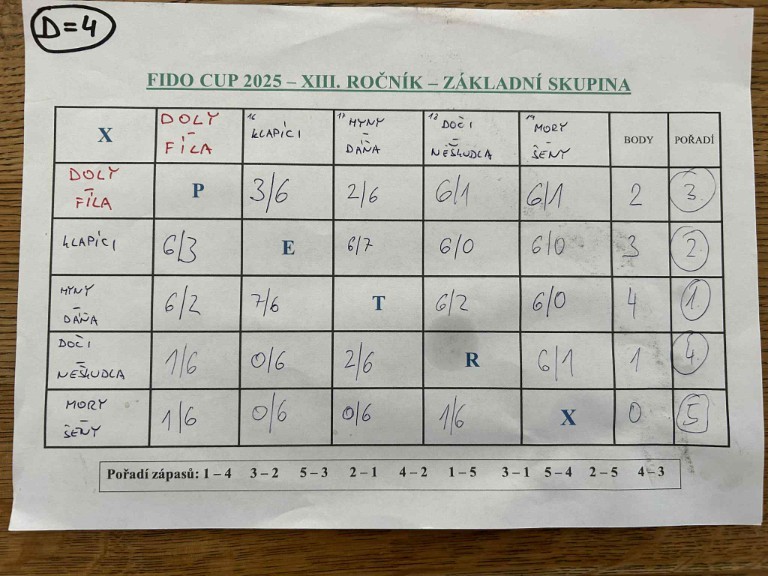 D=4
FIDO CUP 2025 – XIII. ROČNÍK – ZÁKLADNÍ SKUPINA
X DOLY – FÍLA 16 KLAPÍCI 17 HYNY – DÁŇA 18 DOČI – NEŠKUDLA 19 MORY – ŠENY BODY POŘADÍ
DOLY – FÍLA P 3/6 2/6 6/1 6/1 2 3
KLAPÍCI 6/3 E 6/7 6/0 6/0 3 2
HYNY – DÁŇA 6/2 7/6 T 6/2 6/0 4 1
DOČI – NEŠKUDLA 1/6 0/6 2/6 R 6/1 1 4
MORY – ŠENY 1/6 0/6 0/6 1/6 X 0 5
Pořadí zápasů: 1 – 4 3 – 2 5 – 3 2 – 1 4 – 2 1 – 5 3 – 1 5 – 4 2 – 5 4 – 3